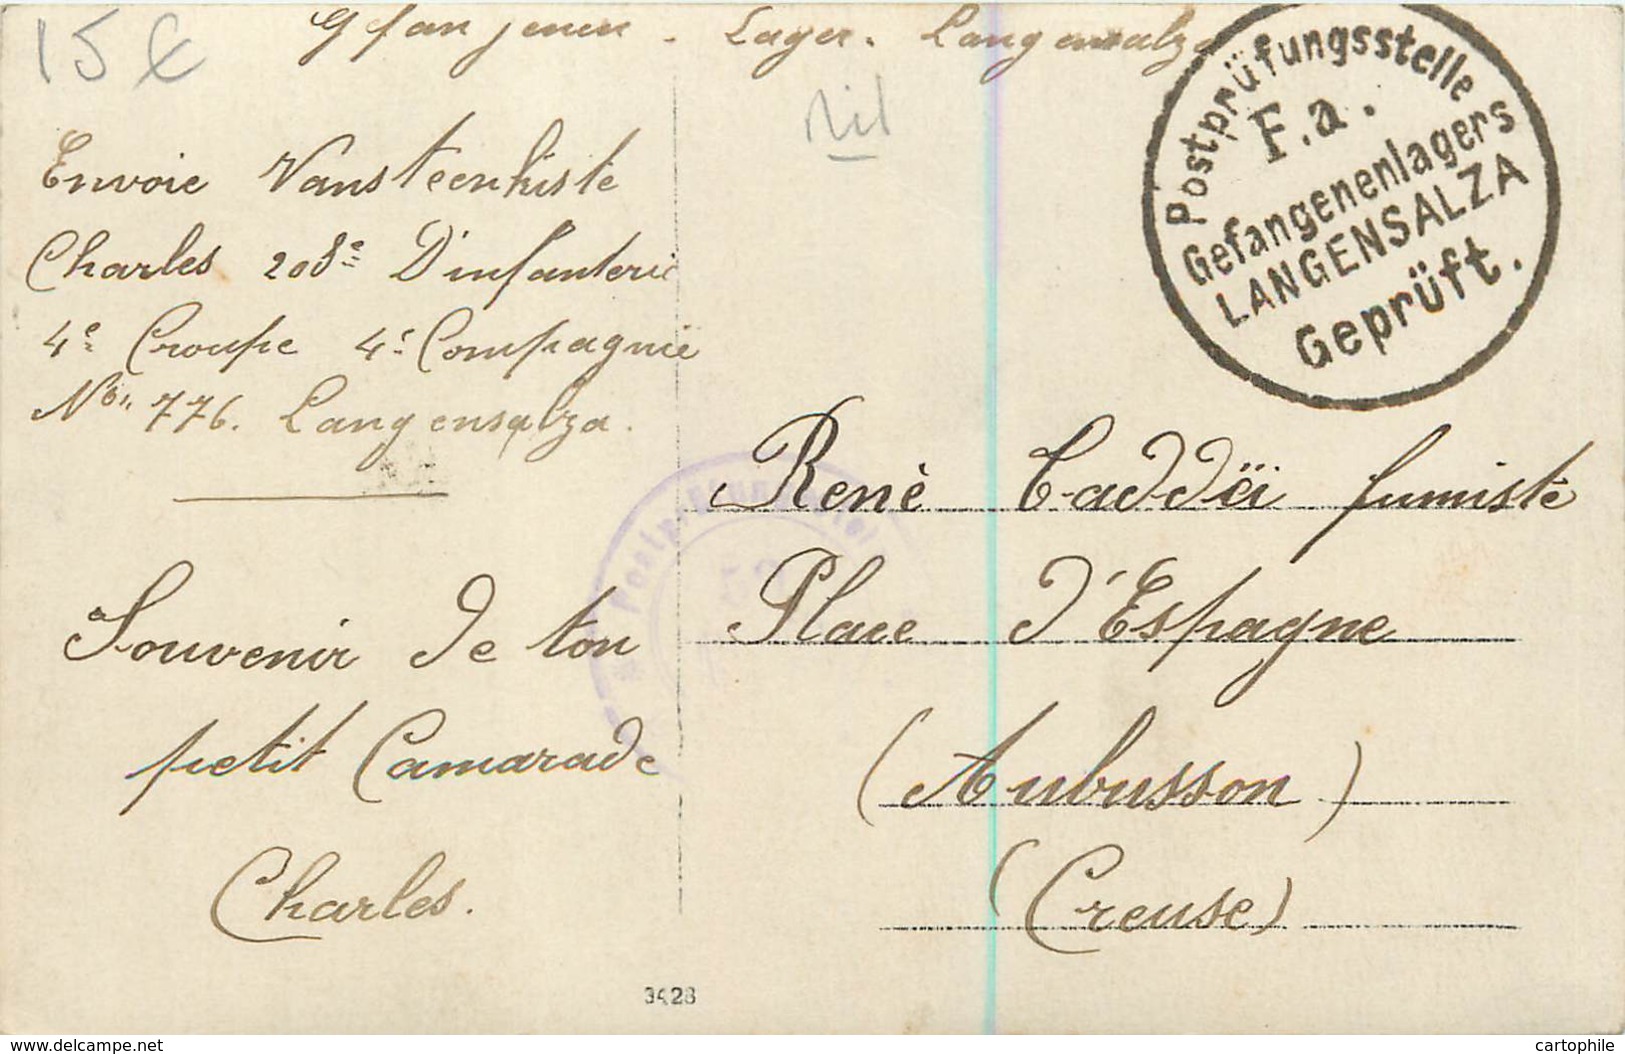 15 €
Gefangenen - Lager. Langensalza
Postprüfungsstelle
F.a.
Gefangenenlagers
LANGENSALZA
Geprüft.
Envoie Vansteenkiste
Charles 208e D'infanterie
4e Croupe 4e Compagnie
No. 776. Langensalza.
Renè Caddëi fumiste
Place d'Espagne
(Aubusson)
(Creuse)
Souvenir de ton
petit Camarade
Charles.
3428
www.delcampe.net
cartophile